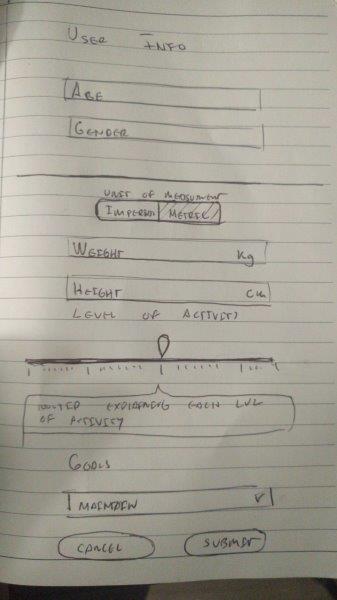 USER INFO
AGE
GENDER
UNIT OF MEASUMENT
IMPERIAL METRIC
WEIGHT Kg
HEIGHT cm
LEVEL OF ACTIVITY
EXPLAINING EACH LVL
OF ACTIVITY
GOALS
MAINTAIN
CANCEL SUBMIT